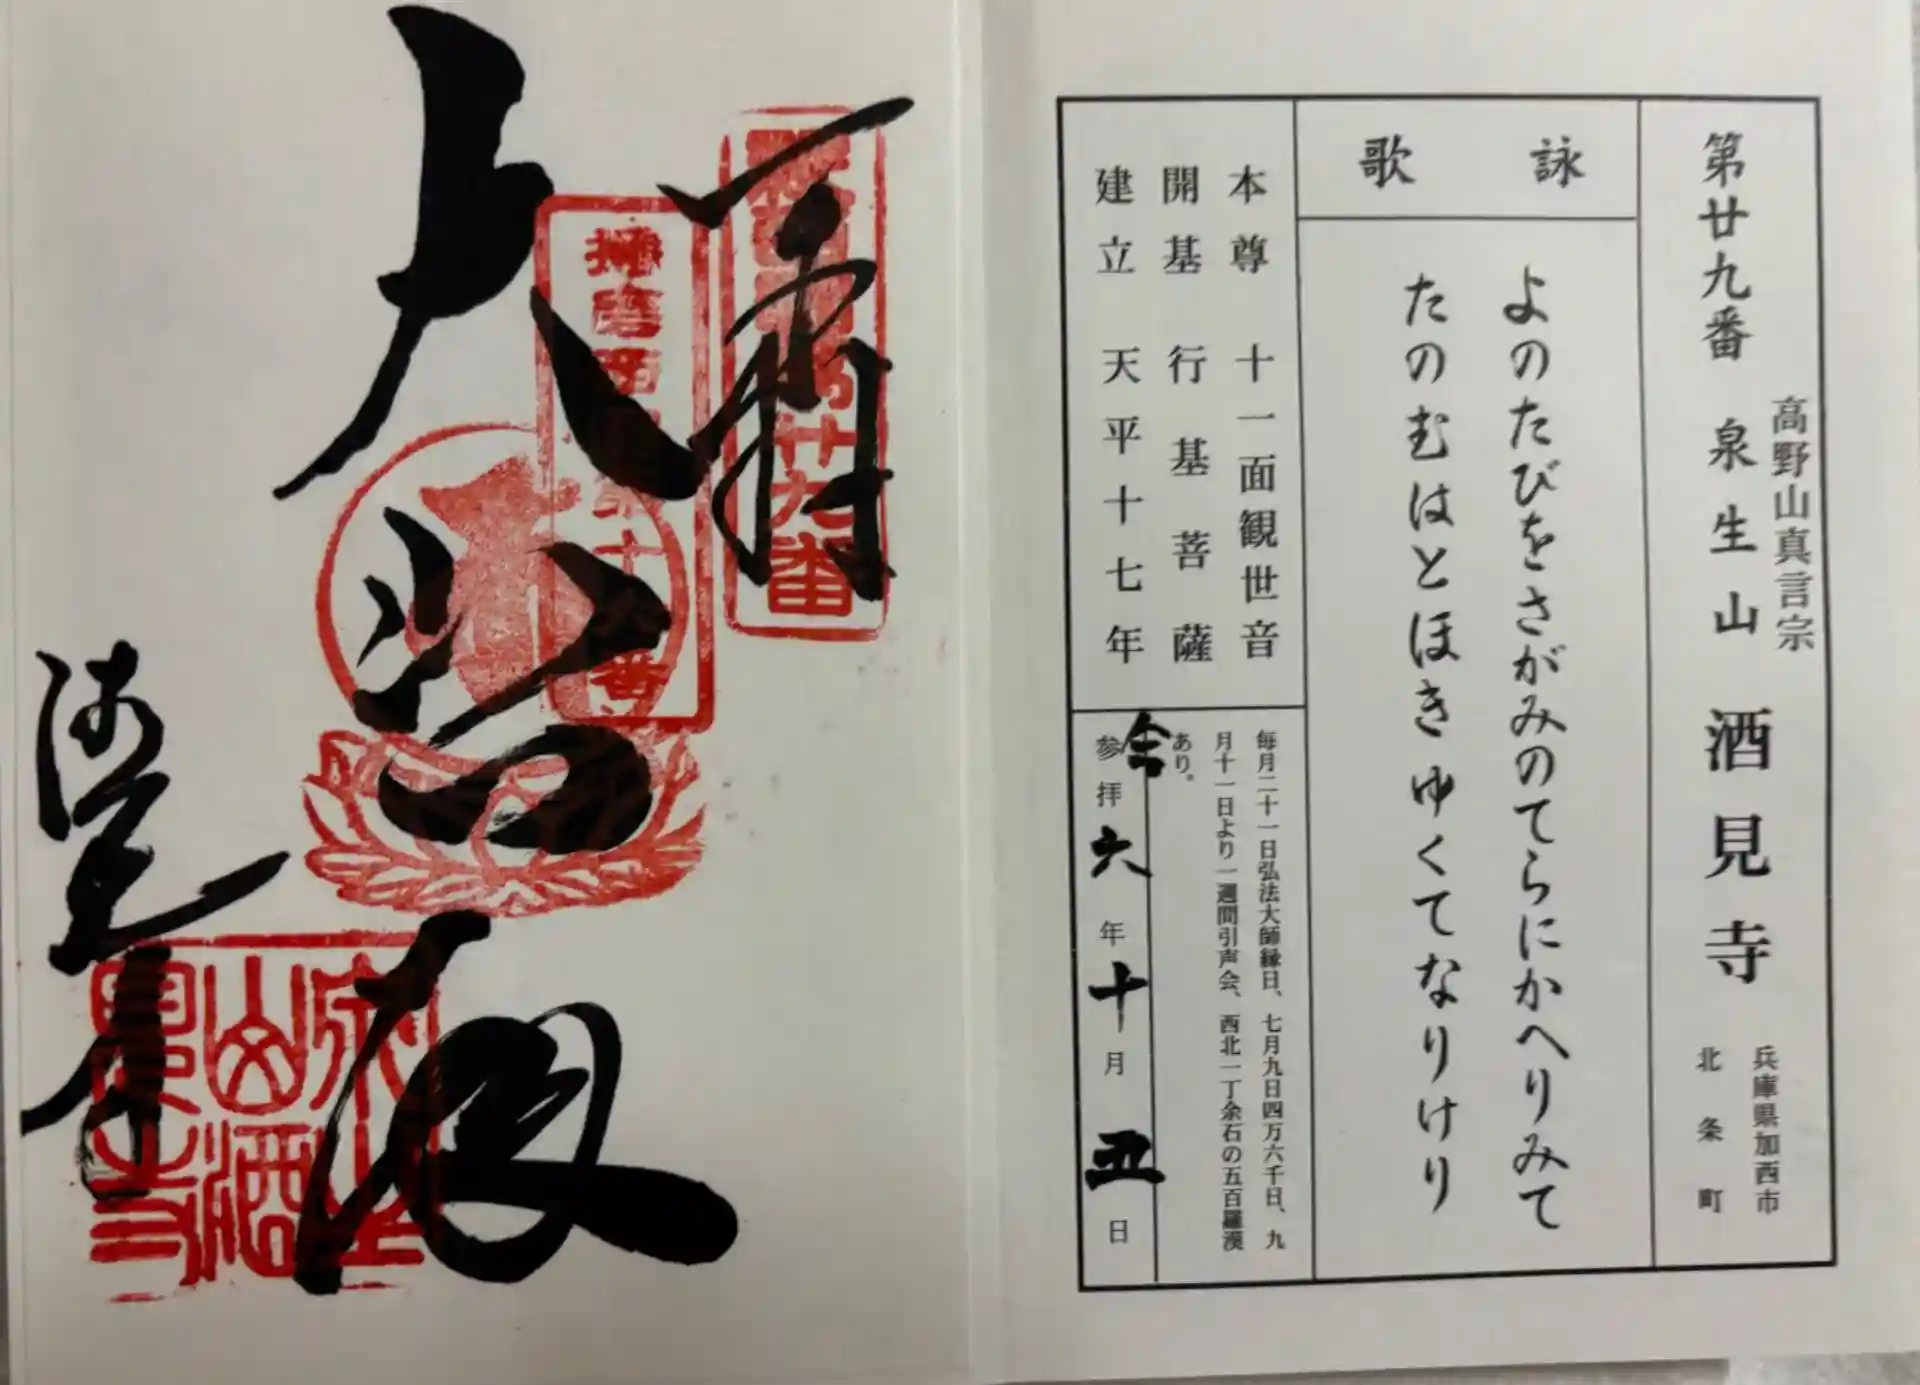 第廿九番 泉生山 酒見寺
高野山真言宗
兵庫県加西市
北条町
詠歌
よのたびをさがみのてらにかへりみて
たのむはとほきゆくてなりけり
本尊 十一面観世音
開基 行基菩薩
建立 天平十七年
毎月二十一日弘法大師縁日、七月九日四万六千日、九
月十一日より一週間引声会、西北一丁余石の五百羅漢
あり。
参拝 六年十月丑日
奉拝
廿九番
播磨西国
番
大悲殿
酒見寺
泉生山酒見寺